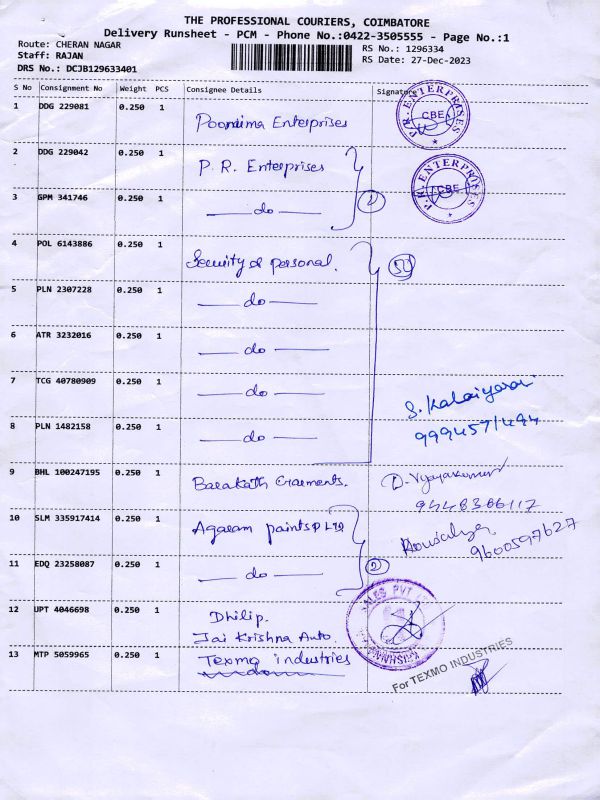 THE PROFESSIONAL COURIERS, COIMBATORE
Delivery Runsheet - PCM - Phone No.:0422-3505555 - Page No.:1
Route: CHERAN NAGAR
RS No.: 1296334
Staff: RAJAN
RS Date: 27-Dec-2023
DRS No.: DCJB129633401
S No Consignment No Weight PCS Consignee Details Signature
1 DDG 229081 0.250 1 Poornima Enterprises
P.R. ENTERPRISES CBE
2 DDG 229042 0.250 1 P. R. Enterprises
P.R. ENTERPRISES CBE
3 GPM 341746 0.250 1 do 2
4 POL 6143886 0.250 1 Security & personal.
5 PLN 2307228 0.250 1 do
6 ATR 3232016 0.250 1 do
7 TCG 40780909 0.250 1 do
S. Kalaiyarasi
8 PLN 1482158 0.250 1 do
9 BHL 100247195 0.250 1 Barakath Garments.
D. Vijayakumar
9448366117
10 SLM 335917414 0.250 1 Agaram paints P Ltd
Kowsalya
9600597627
11 EDQ 23258087 0.250 1 do 2
12 UPT 4046698 0.250 1 Dhilip.
Jai Krishna Auto.
SALES PVT
13 MTP 5059965 0.250 1 Texmo industries
For TEXMO INDUSTRIES